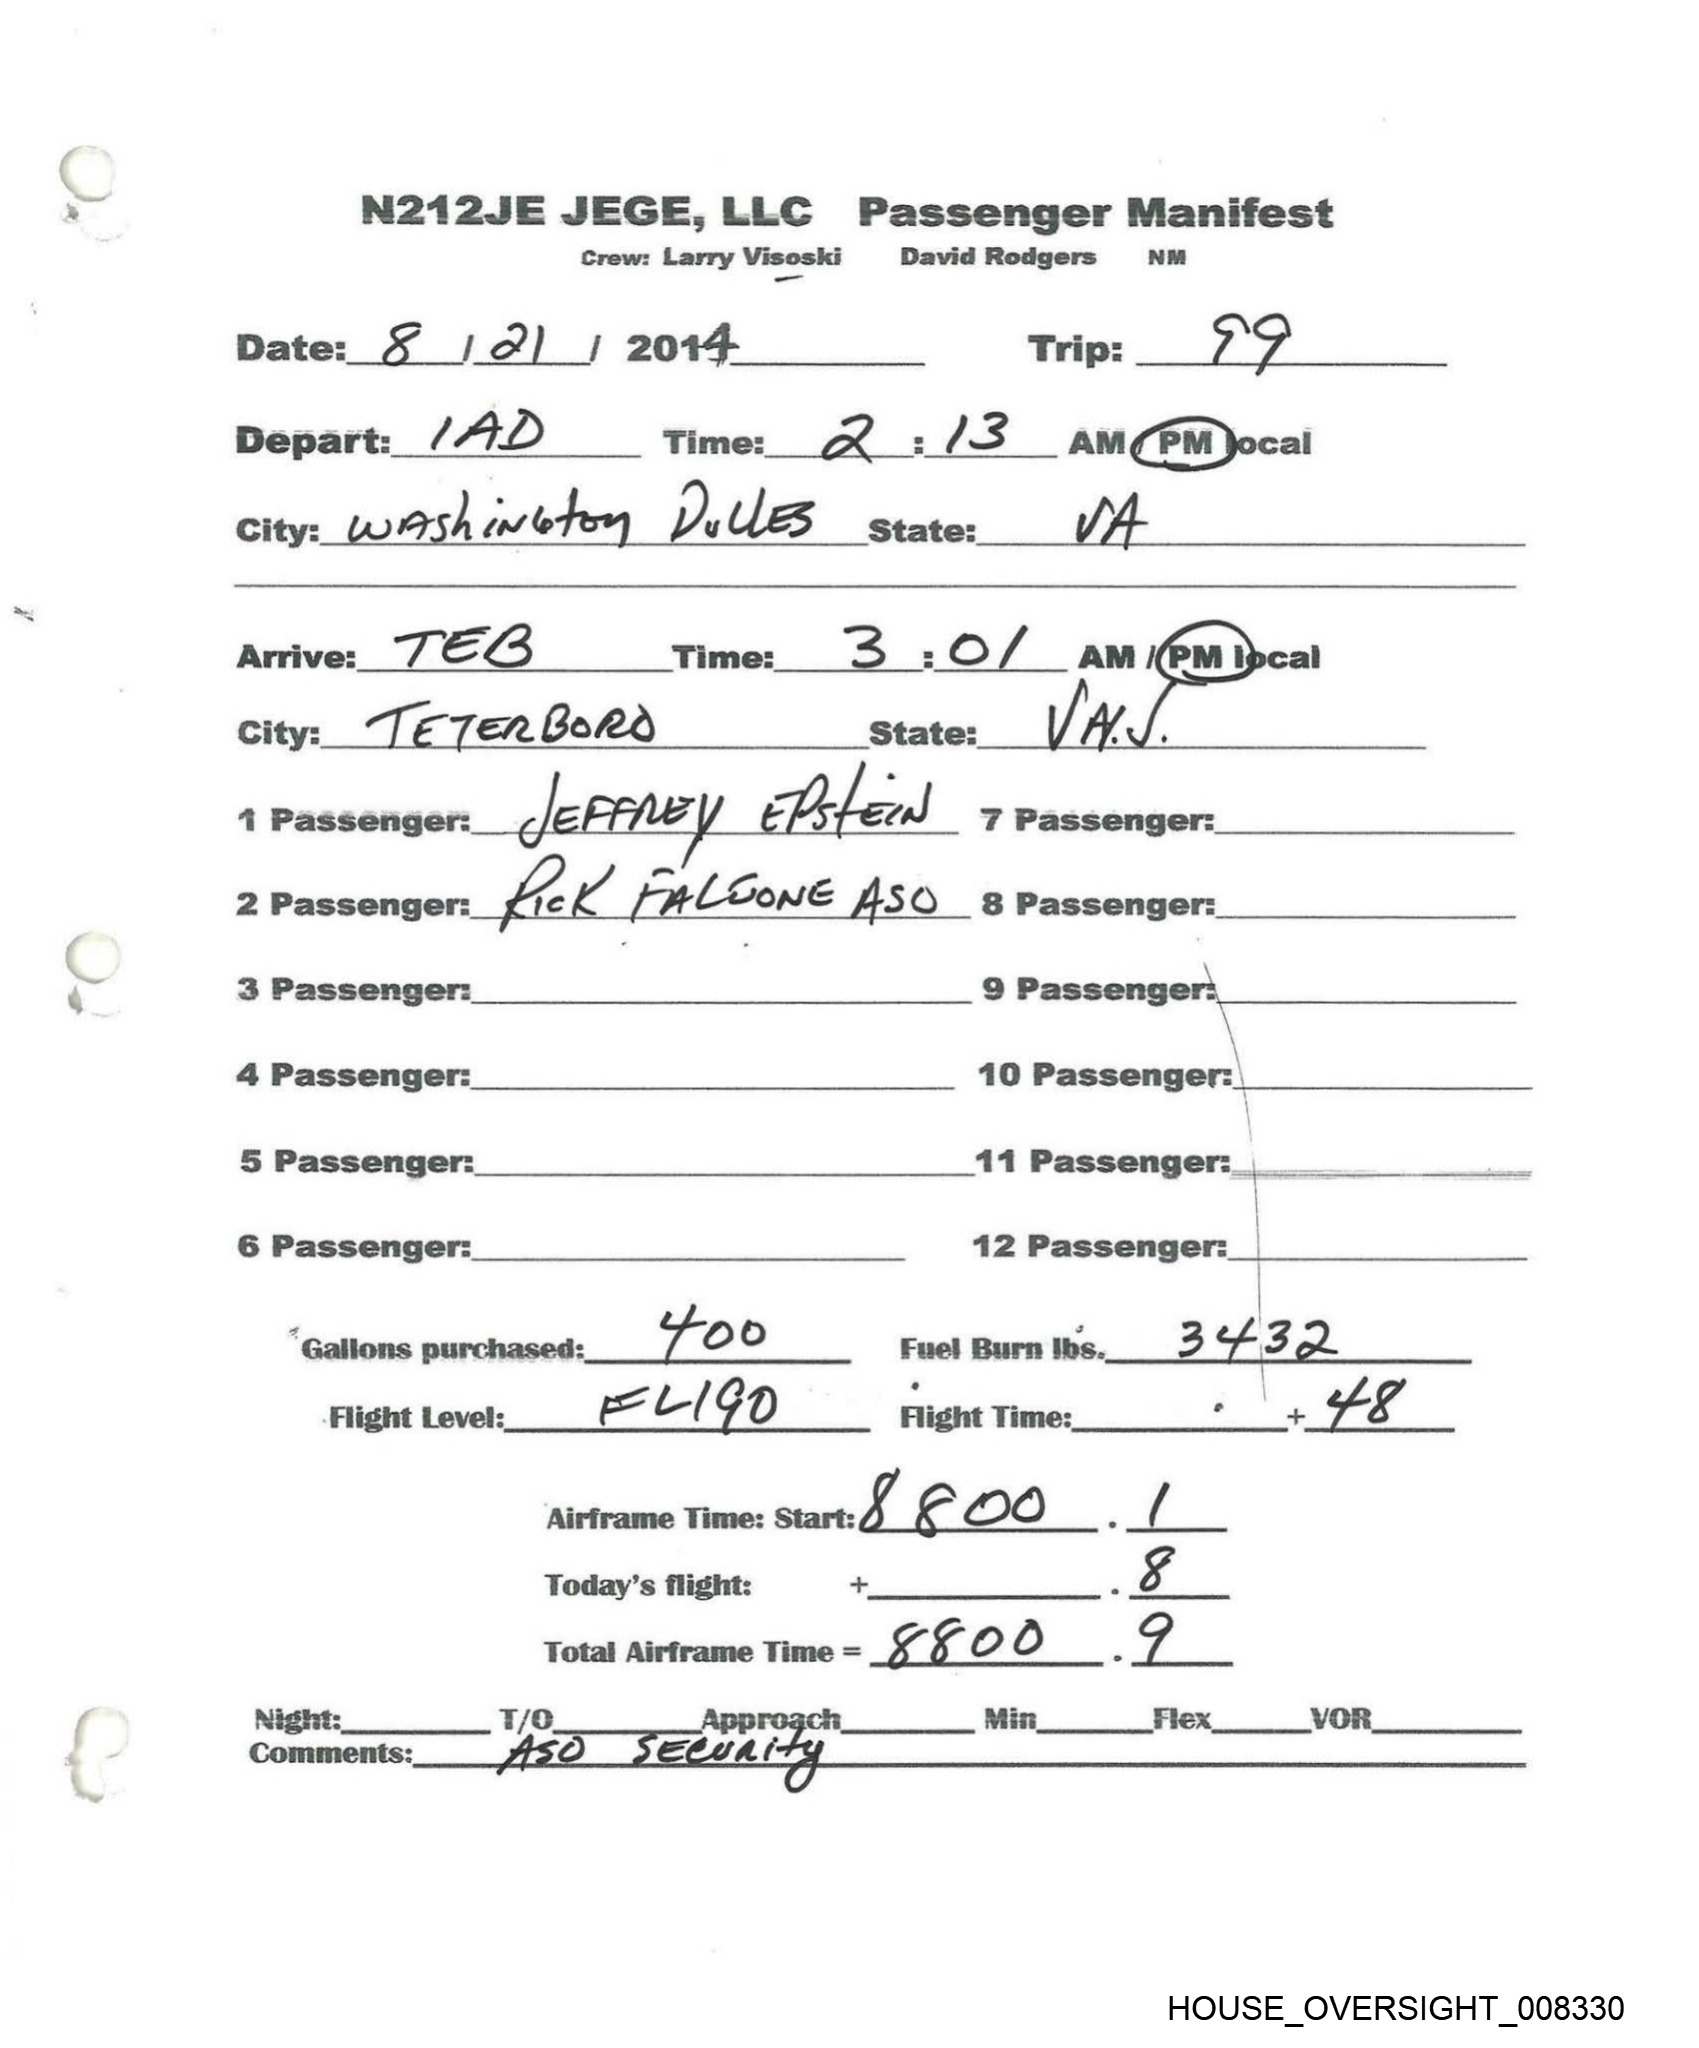 N212JE JEGE, LLC Passenger Manifest
Crew: Larry Visoski David Rodgers NM
Date: 8 / 21 / 2014 Trip: 99
Depart: IAD Time: 2 : 13 AM / PM local
City: Washington Dulles State: VA
Arrive: TEB Time: 3 : 01 AM / PM local
City: TETERBORO State: N.J.
1 Passenger: JEFFREY EPstEiN 7 Passenger:
2 Passenger: Rick FALCONE ASO 8 Passenger:
3 Passenger: 9 Passenger:
4 Passenger: 10 Passenger:
5 Passenger: 11 Passenger:
6 Passenger: 12 Passenger:
Gallons purchased: 400 Fuel Burn lbs. 3432
Flight Level: FL190 Flight Time: + 48
Airframe Time: Start: 8800 . 1
Today's flight: + . 8
Total Airframe Time = 8800 . 9
Night: T/O Approach Min Flex VOR
Comments: ASO SECURity
HOUSE_OVERSIGHT_008330